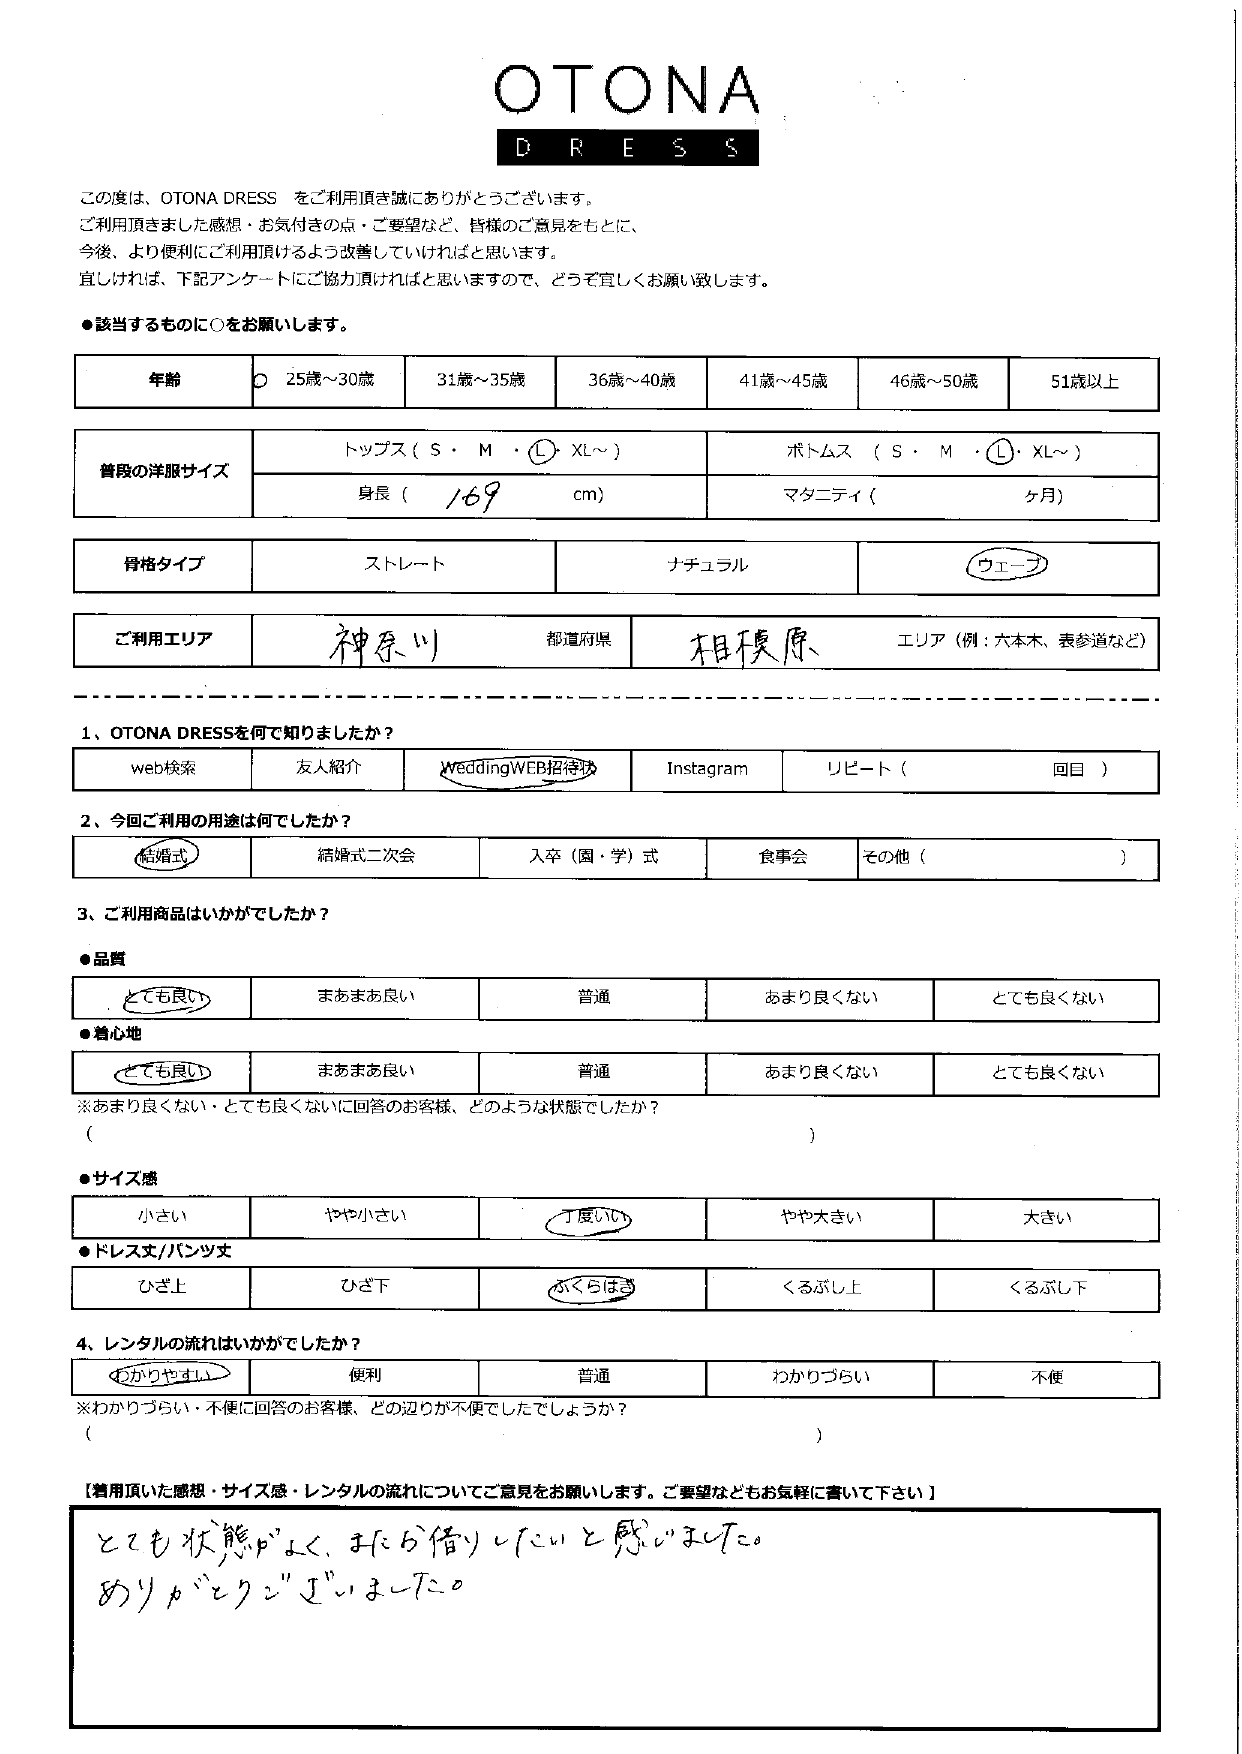 OTONA
DRESS
この度は、OTONA DRESS をご利用頂き誠にありがとうございます。
ご利用頂きました感想・お気付きの点・ご要望など、皆様のご意見をもとに、
今後、より便利にご利用頂けるよう改善していければと思います。
宜しければ、下記アンケートにご協力頂ければと思いますので、どうぞ宜しくお願い致します。
●該当するものに○をお願いします。
年齢 ○ 25歳～30歳 31歳～35歳 36歳～40歳 41歳～45歳 46歳～50歳 51歳以上
普段の洋服サイズ トップス ( S ・ M ・ L ・ XL～ ) ボトムス ( S ・ M ・ L ・ XL～ )
身長 ( 169 cm) マタニティ ( ヶ月)
骨格タイプ ストレート ナチュラル ウェーブ
ご利用エリア 神奈川 都道府県 相模原 エリア（例：六本木、表参道など）
1、OTONA DRESSを何で知りましたか？
web検索 友人紹介 WeddingWEB招待状 Instagram リピート ( 回目 )
2、今回ご利用の用途は何でしたか？
結婚式 結婚式二次会 入卒（園・学）式 食事会 その他 ( )
3、ご利用商品はいかがでしたか？
●品質
とても良い まあまあ良い 普通 あまり良くない とても良くない
●着心地
とても良い まあまあ良い 普通 あまり良くない とても良くない
※あまり良くない・とても良くないに回答のお客様、どのような状態でしたか？
( )
●サイズ感
小さい やや小さい 丁度いい やや大きい 大きい
●ドレス丈/パンツ丈
ひざ上 ひざ下 ふくらはぎ くるぶし上 くるぶし下
4、レンタルの流れはいかがでしたか？
わかりやすい 便利 普通 わかりづらい 不便
※わかりづらい・不便に回答のお客様、どの辺りが不便でしたでしょうか？
( )
【着用頂いた感想・サイズ感・レンタルの流れについてご意見をお願いします。ご要望などもお気軽に書いて下さい】
とても状態がよく、またお借りしたいと感じました。
ありがとうございました。